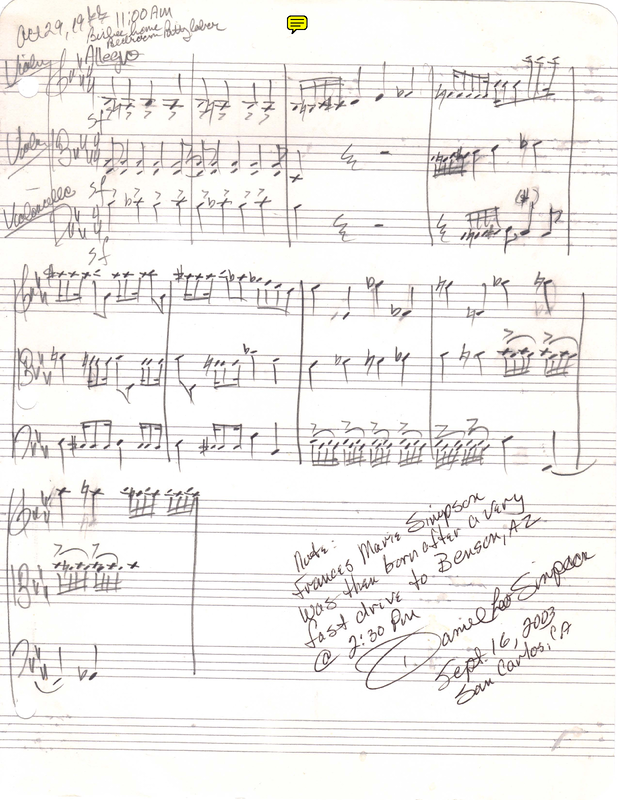 Oct 29, 19
11:00 AM
Bisbee home
Bedroom
Allegro
Violin
Viola
Violoncello
sf
sf
sf
Note:
Frances Marie Simpson
was then born after a very
fast drive to Benson, AZ
@ 2:30 PM
Daniel Leo Simpson
Sept. 16, 2003
San Carlos, CA